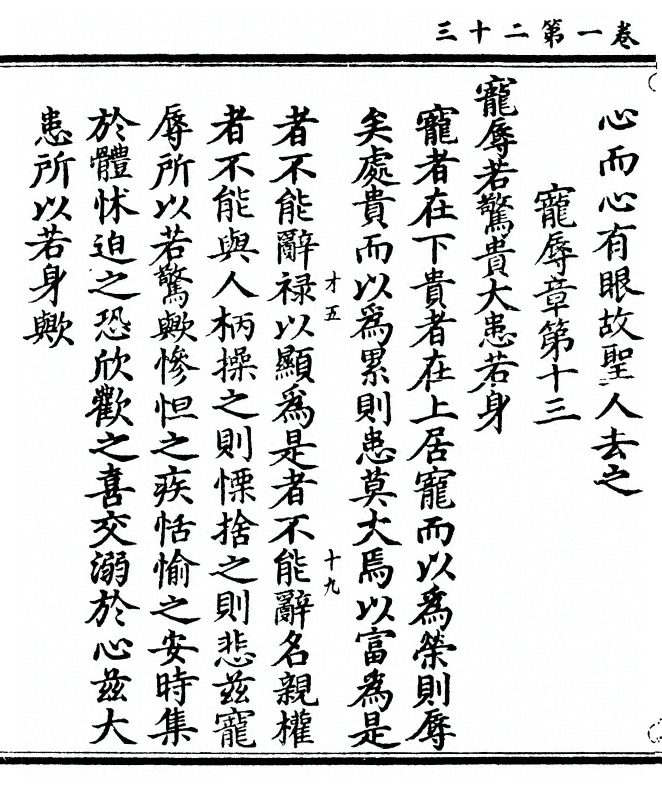 卷一第二十三
心而心有眼故聖人去之
寵辱章第十三
寵辱若驚貴大患若身
寵者在下貴者在上居寵而以為榮則辱
矣處貴而以為累則患莫大焉以富為是
者不能辭祿以顯為是者不能辭名親權
才五
十九
者不能與人柄操之則慄捨之則悲茲寵
辱所以若驚歟慘怛之疾恬愉之安時集
於體怵迫之恐欣歡之喜交溺於心茲大
患所以若身歟